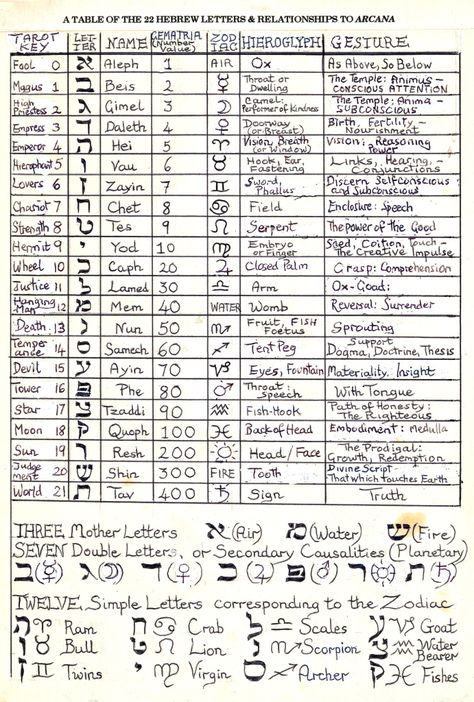 A TABLE OF THE 22 HEBREW LETTERS & RELATIONSHIPS TO ARCANA
TAROT KEY LETTER NAME GEMATRIA (Number value) ZODIAC HIEROGLYPH GESTURE
Fool 0 א Aleph 1 AIR Ox As Above, So Below
Magus 1 ב Beis 2 ☿ Throat or Dwelling The Temple: Animus - CONSCIOUS ATTENTION
High Priestess 2 ג Gimel 3 ☽ Camel: Performer of Kindness The Temple: Anima - SUBCONSCIOUS
Empress 3 ד Daleth 4 ♀ Doorway (or Breast) Birth, Fertility - Nourishment
Emperor 4 ה Hei 5 ♈ Vision, Breath (or Window) Vision: Reasoning Power
Hierophant 5 ו Vau 6 ♉ Hook, Ear, Fastening Links, Hearing, - Conjunctions
Lovers 6 ז Zayin 7 ♊ Sword, Phallus Discern Selfconscious and Subconscious
Chariot 7 ח Chet 8 ♋ Field Enclosure: Speech
Strength 8 ט Tes 9 ♌ Serpent The Power of the Good
Hermit 9 י Yod 10 ♍ Embryo or Finger Seed, Coition, Touch - The Creative Impulse
Wheel 10 כ Caph 20 ♃ Closed Palm Grasp: Comprehension
Justice 11 ל Lamed 30 ♎ Arm Ox-Goad:
Hanging Man 12 מ Mem 40 WATER Womb Reversal: Surrender
Death. 13 נ Nun 50 ♏ Fruit, FISH Foetus Sprouting
Temperance 14 ס Samech 60 ♐ Tent Peg Support Dogma, Doctrine, Thesis
Devil 15 ע Ayin 70 ♑ Eyes, Fountain Materiality. Insight
Tower 16 פ Phe 80 ♂ Throat: Speech With Tongue
Star 17 צ Tzaddi 90 ♒ Fish-Hook Path of Honesty: The Righteous
Moon 18 ק Quoph 100 ♓ Back of Head Embodiment: Medulla
Sun 19 ר Resh 200 ☉ Head/Face The Prodigal: Growth, Redemption
Judgement 20 ש Shin 300 FIRE Tooth Divine Script That which touches Earth
World 21 ת Tav 400 ♄ Sign Truth
THREE Mother Letters א (Air) מ (Water) ש (Fire)
SEVEN Double Letters, or Secondary Causalities (Planetary)
ב (☿) ג (☽) ד (♀) כ (♃) פ (♂) ר (☉) ת (♄)
TWELVE Simple Letters corresponding to the Zodiac
ה ♈ Ram ח ♋ Crab ל ♎ Scales ע ♑ Goat
ו ♉ Bull ט ♌ Lion נ ♏ Scorpion צ ♒ Water Bearer
ז ♊ Twins י ♍ Virgin ס ♐ Archer ק ♓ Fishes